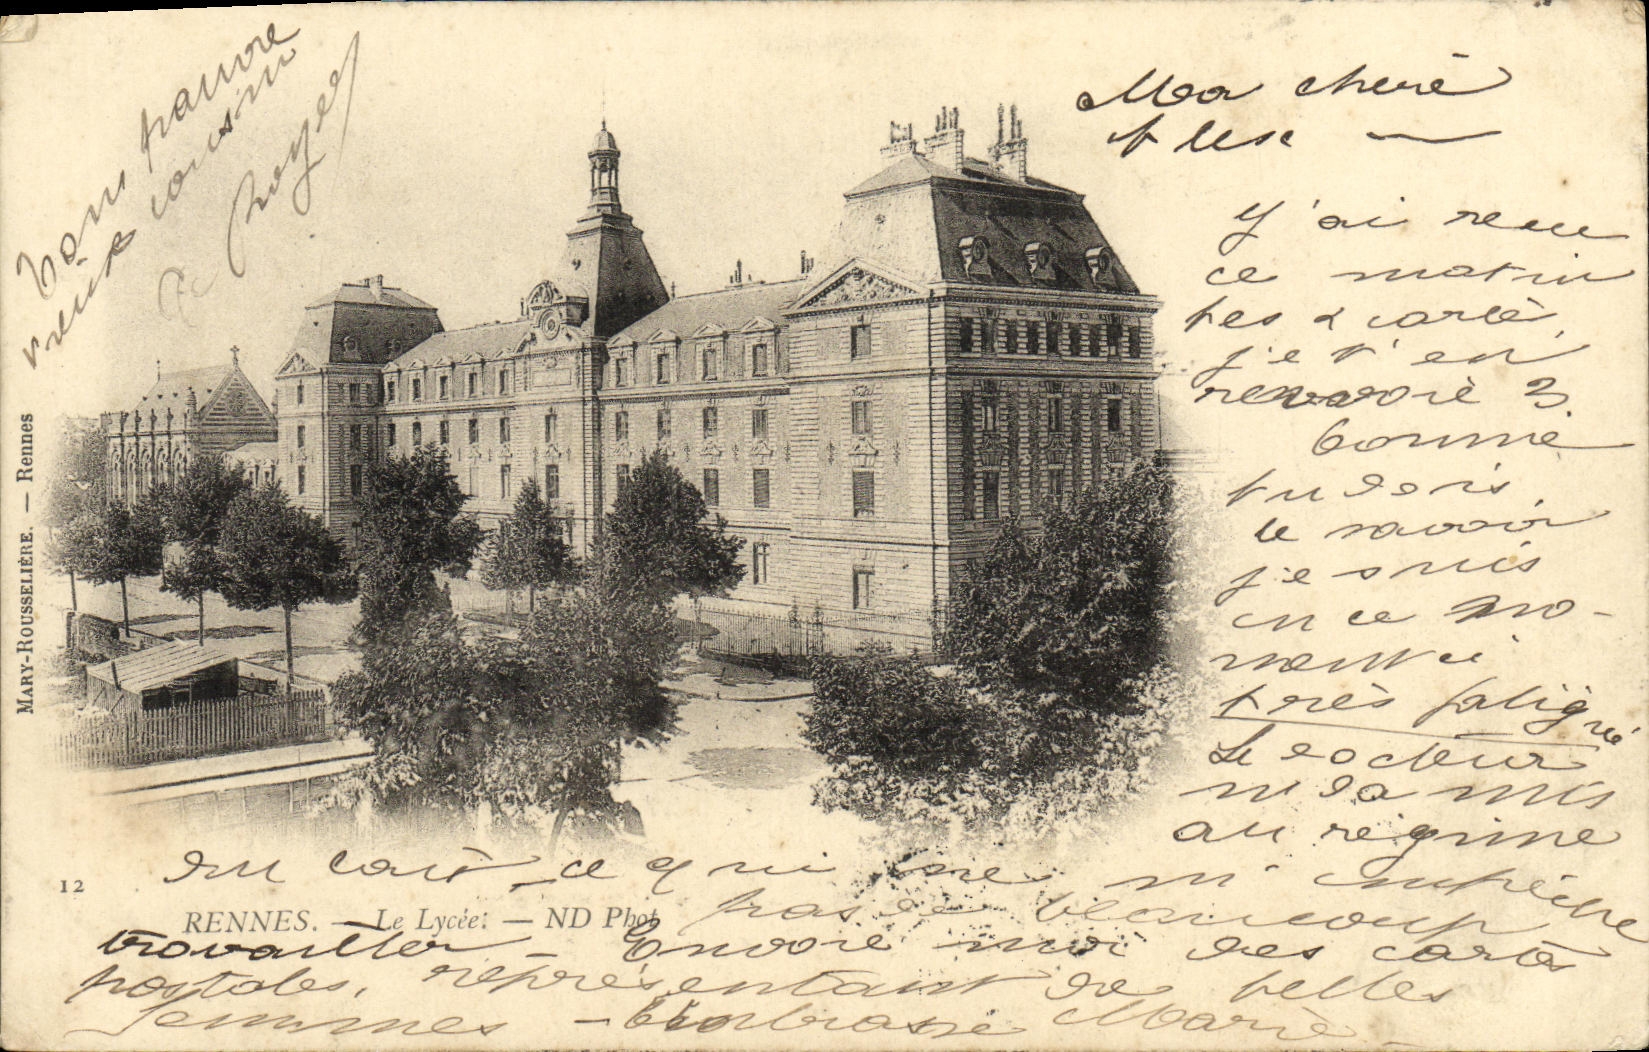 Mon chère
Alex —
J'ai recu
ce matin
tes 2 carte,
je t'en
renvoie 3.
Comme
tu dois
le savoir
je suis
en ce mo-
ment ci
très fatigué
Le docteur
m'a mis
au régime
du lait, ce qui ne m'empêche
pas de beaucoup
travailler - Envoie moi des cartes
postales, représentant de belles
femmes - Embrasse Marie
Ton pauvre
vieux cousin
Royer
MARY-ROUSSELIÈRE. — Rennes
12
RENNES. — Le Lycée. — ND Phot.